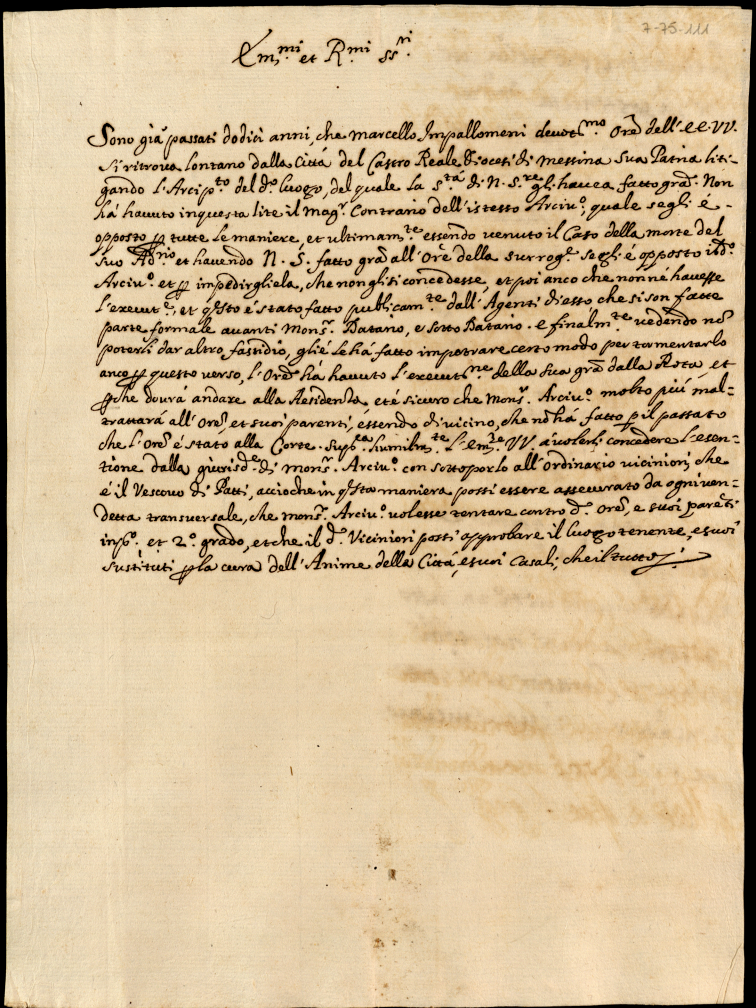 7-75-111
Em.mi et R.mi SS.ri
Sono già passati dodici anni, che Marcello Impallomeni devot.mo Ore dell'EE.VV.
si ritrova lontano dalla Città del Castro Reale Diocesi di Messina sua Patria liti-
gando l'Arcip.to del d.o luogo, del quale la S.tà di N. S.re gli havea fatto gra.a Non
há havuto in questa lite il magr. Contrario dell'istesso Arciv.o, quale segli é
opposto p tutte le maniere, et ultimam.te essendo venuto il Caso della morte del
suo Ad.rio et havendo N. S. fatto gra.a all'Ore della surrog.e segli é opposto it d.o
Arciv.o et p impedirgliela, che non gli si concedesse, et poi anco che non né havesse
l'execut.e, et q̃sto é stato fatto publicam.te dall'Agenti di esso che si son fatte
parte formale avanti Mons.r Batano, e sotto Batano. e finalm.te vedendo nõ
poterli dar altro fastidio, gli é le há fatto impetrare certo modo per tormentarlo
anco p questo verso, l'Ore há havuto l'execut.ne della sua gra.a dalla Rota et
pche dovrá andare alla Residenza et é sicuro che Mons.r Arciv.o molto piú mal-
trattará all'Ore, et suoi parenti, essendo di vicino, che nõ há fatto p il passato
che l'Ore é stato alla Corte. Sup.ca humilm.te l'em.ze VV a volerli concedere l'esen-
tione dalla giurisd.e di mons.r Arciv.o con sottoporlo all'ordinario viciniori, che
é il Vescovo di Patti, acció che in q̃sta maniera possi essere assecurato da ogni ven-
detta transversale, che mons.r Arciv.o volesse tentare contro d.o Ore, e suoi parẽti
in p.o et 2.o grado, et che il d.o Viciniori possi approbare il luogotenente, e suoi
sustituti p la cura dell'Anime della Cittá, e suoi Casali, che il tutto